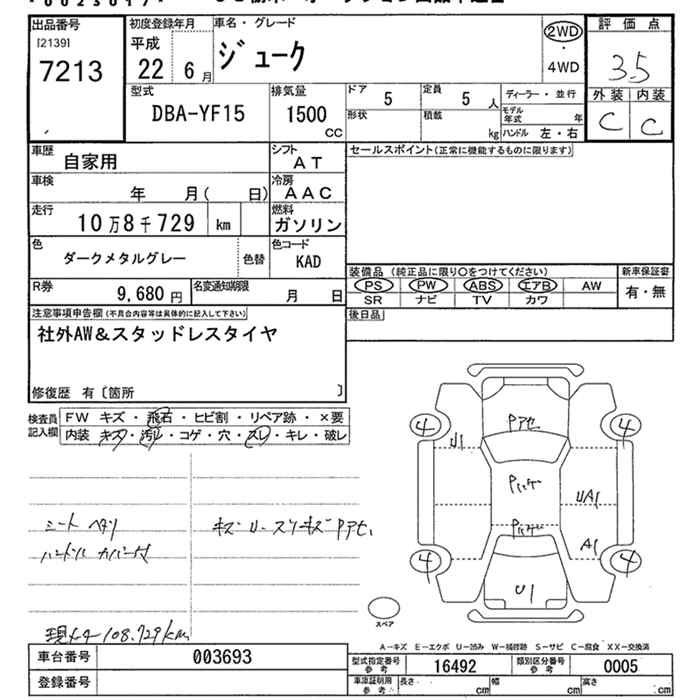 出品番号
[2139]
7213
初度登録年月
平成
22年 6月
車名・グレード
ジューク
2WD
・
4WD
評価点
3.5
外装 内装
C C
型式
DBA-YF15
排気量
1500
CC
ドア 5
定員 5人
ディーラー・並行
形状
積載 kg
モデル年式 年
ハンドル 左・右
車歴
自家用
シフト
AT
セールスポイント(正常に機能するものに限ります)
車検
年 月( 日)
冷房
AAC
走行
10万8千729 km
燃料
ガソリン
色
ダークメタルグレー
色替
色コード
KAD
装備品(純正品に限り○をつけてください)
新車保証書
PS PW ABS エアB AW
有・無
SR ナビ TV カワ
R券
9,680円
名変通知期限
月 日
後日品
注意事項申告欄(不具合内容等は具体的に記入して下さい)
社外AW&スタッドレスタイヤ
修復歴 有〔箇所 〕
検査員記入欄
FW キズ・飛石・ヒビ割・リペア跡・×要
内装 キズ・汚レ・コゲ・穴・スレ・キレ・破レ
4 4
Pアセ
U1
Pハンケー
UA1
Pハンケー
A1
4 4
U1
シート ヘタリ
キズ・U・スリキズPアセ、
ハンドル カバー付
スペア
現メーター108.729km
A-キズ E-エクボ U-凹み W-補修跡 S-サビ C-腐食 XX-交換済
車台番号
003693
型式指定番号
参考
16492
類別区分番号
参考
0005
登録番号
車庫証明用
参考
長さ cm
幅 cm
高さ cm